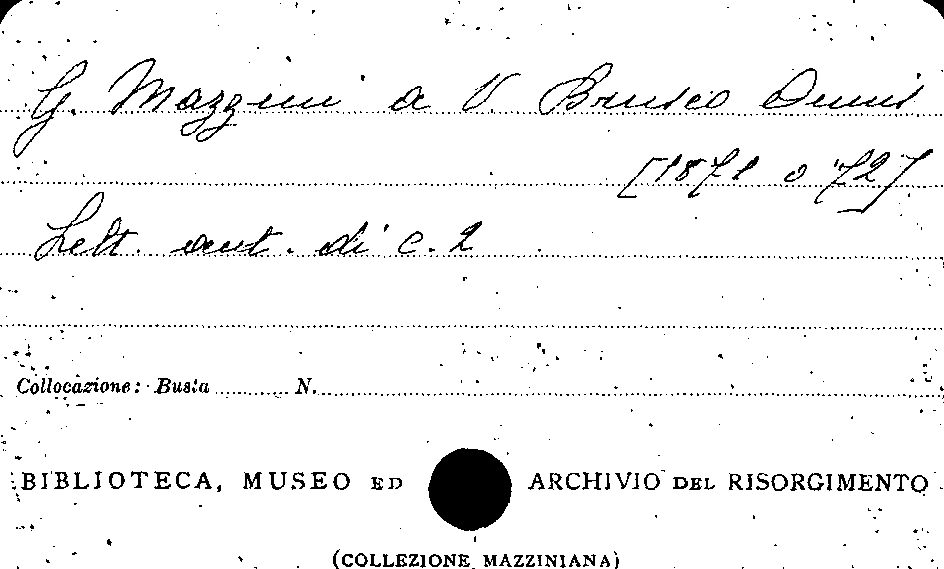 G. Mazzini a V. Brusco Onnis
[1871 o '72]
Lett. aut. di c. 2
Collocazione: Busta ......... N. .........
BIBLIOTECA, MUSEO ED ARCHIVIO DEL RISORGIMENTO
(COLLEZIONE MAZZINIANA)